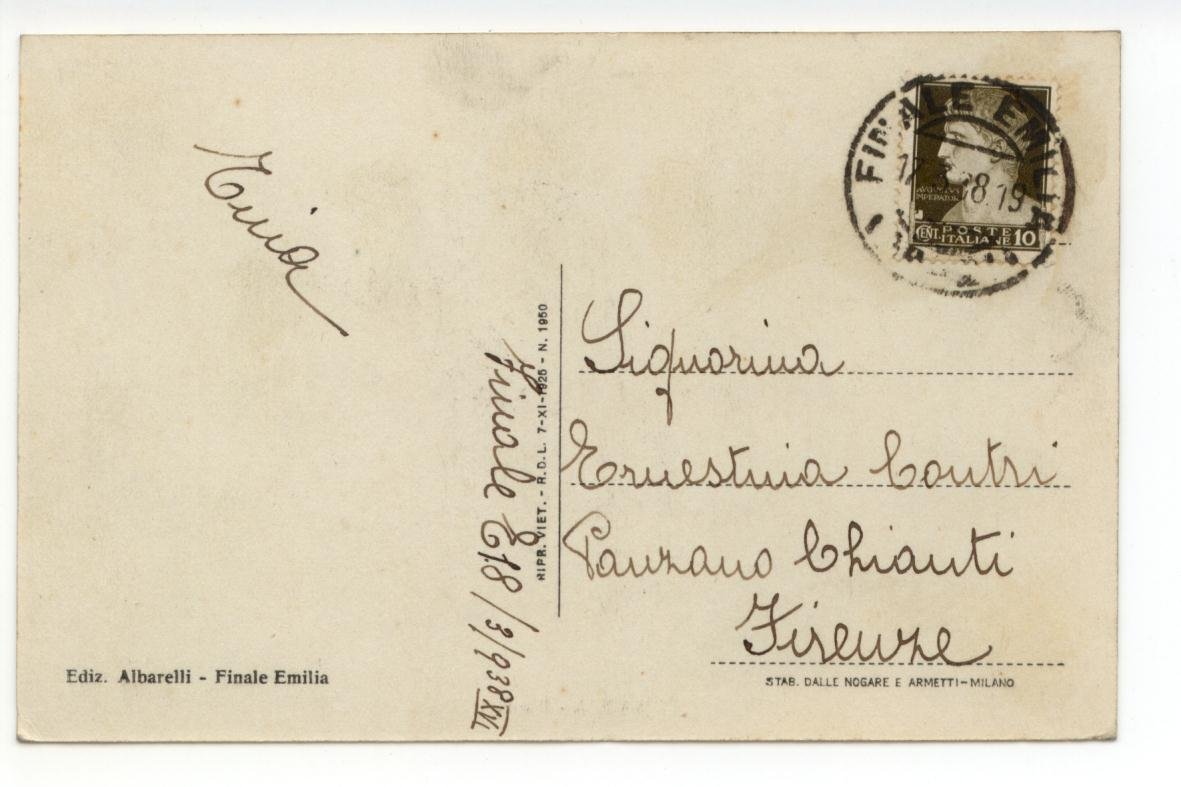 Tina
Finale E. 18/3/938 XVI
RIPR. VIET. - R.D.L. 7-XI-1925 - N. 1950
Ediz. Albarelli - Finale Emilia
FINALE EMILIA
AVGVSTVS
IMPERATOR
CENT. POSTE
ITALIANE 10
Signorina
Ernestina Contri
Panzano Chianti
Firenze
STAB. DALLE NOGARE E ARMETTI-MILANO